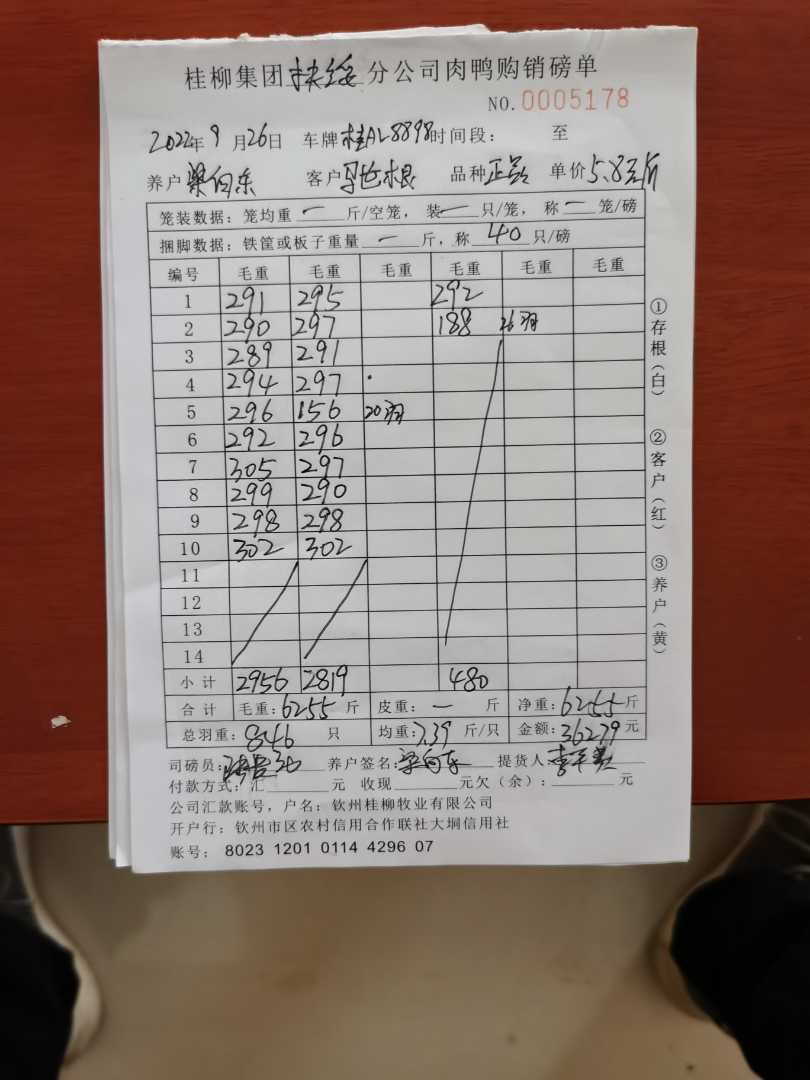 桂柳集团扶绥分公司肉鸭购销磅单
NO.0005178
2022年9月26日 车牌桂AL8898时间段： 至
养户梁向东 客户马世根 品种正品 单价5.8元/斤
笼装数据：笼均重一斤/空笼，装一只/笼，称一笼/磅
捆脚数据：铁筐或板子重量一斤，称40只/磅
编号 毛重 毛重 毛重 毛重 毛重 毛重
1 291 295 292
2 290 297 188 26羽
3 289 291
4 294 297
5 296 156 20羽
6 292 296
7 305 297
8 299 290
9 298 298
10 302 302
11
12
13
14
小计 2956 2819 480
合计 毛重：6255斤 皮重：一斤 净重：6255斤
总羽重：846只 均重：7.39斤/只 金额：36279元
司磅员： 养户签名：梁向东 提货人：
付款方式：汇 元 收现 元欠（余）： 元
公司汇款账号，户名：钦州桂柳牧业有限公司
开户行：钦州市区农村信用合作联社大垌信用社
账号：8023 1201 0114 4296 07
①存根（白） ②客户（红） ③养户（黄）